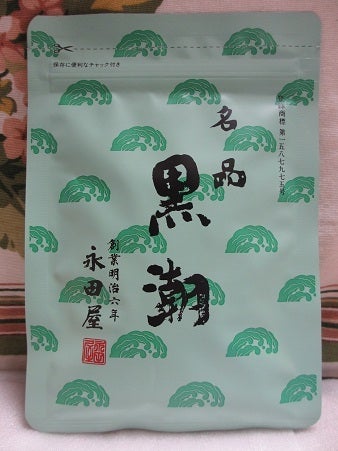 保存に便利なチャック付き
登録商標 第一五八七九七五号
名品
黒潮
創業明治六年
永田屋